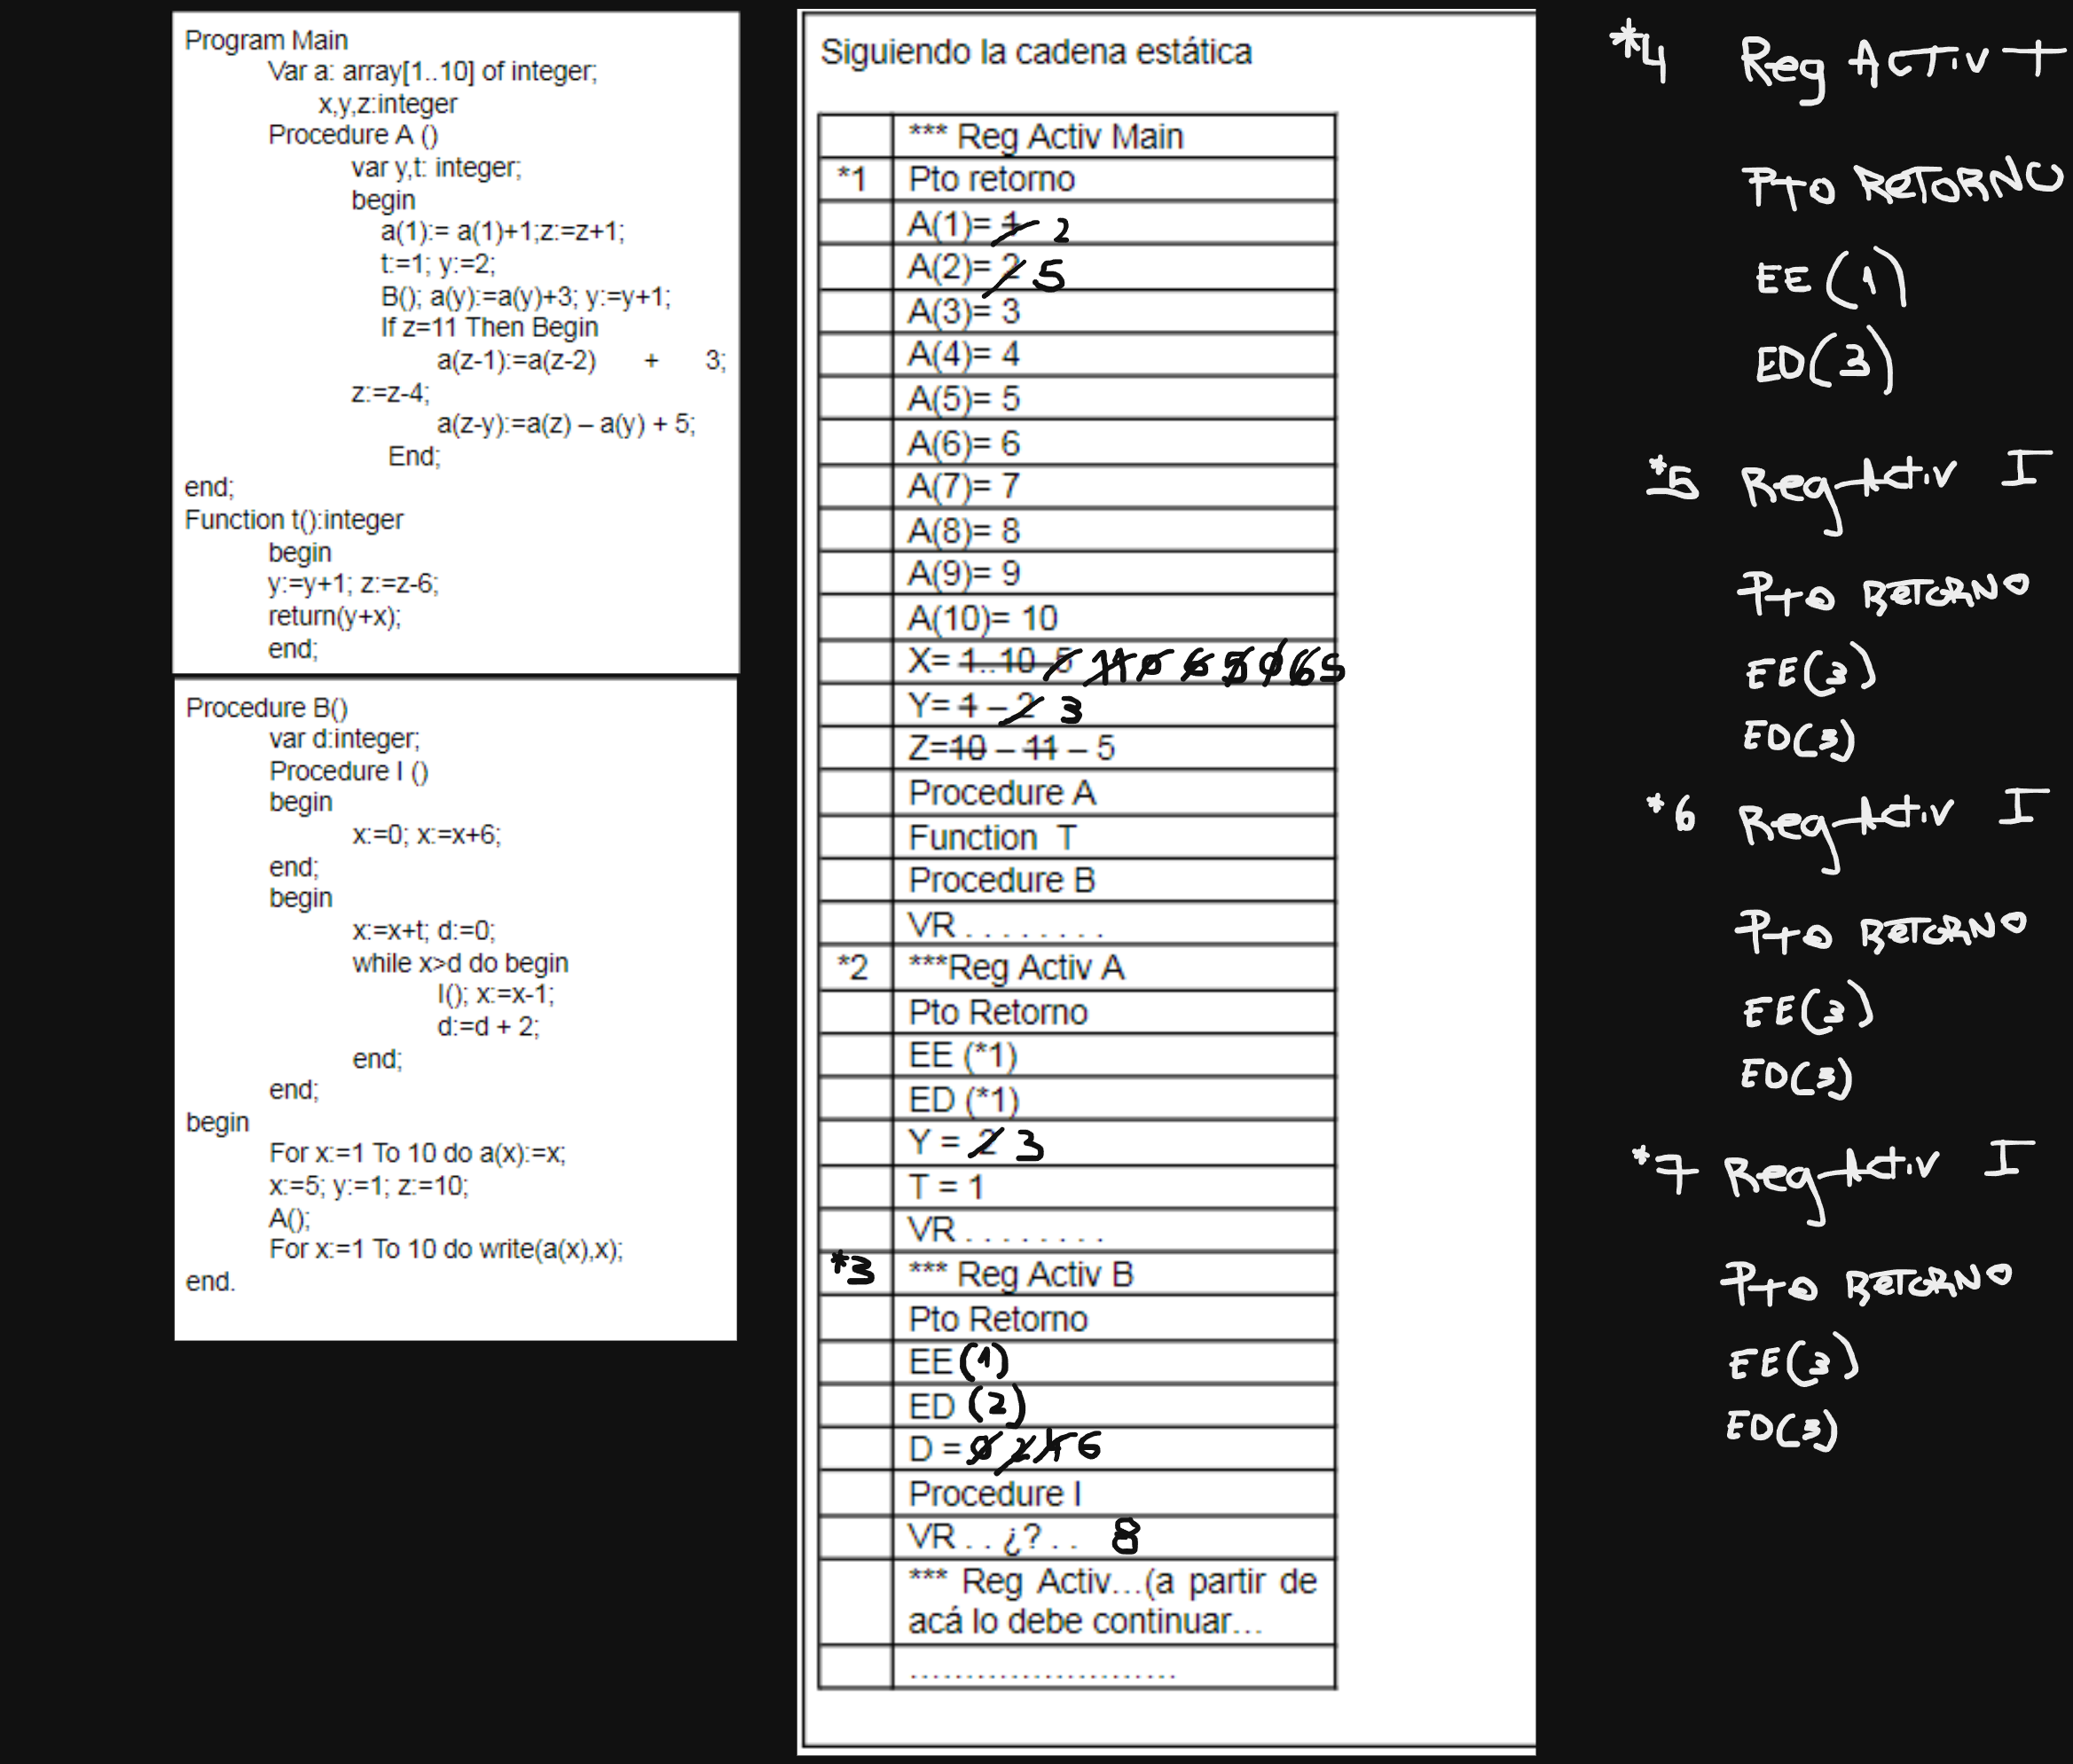 Program Main
Var a: array[1..10] of integer;
x,y,z:integer
Procedure A ()
var y,t: integer;
begin
a(1):= a(1)+1;z:=z+1;
t:=1; y:=2;
B(); a(y):=a(y)+3; y:=y+1;
If z=11 Then Begin
a(z-1):=a(z-2) + 3;
z:=z-4;
a(z-y):=a(z) – a(y) + 5;
End;
end;
Function t():integer
begin
y:=y+1; z:=z-6;
return(y+x);
end;
Procedure B()
var d:integer;
Procedure I ()
begin
x:=0; x:=x+6;
end;
begin
x:=x+t; d:=0;
while x>d do begin
I(); x:=x-1;
d:=d + 2;
end;
end;
begin
For x:=1 To 10 do a(x):=x;
x:=5; y:=1; z:=10;
A();
For x:=1 To 10 do write(a(x),x);
end.
Siguiendo la cadena estática
*** Reg Activ Main
*1 Pto retorno
A(1)= 1 2
A(2)= 2 5
A(3)= 3
A(4)= 4
A(5)= 5
A(6)= 6
A(7)= 7
A(8)= 8
A(9)= 9
A(10)= 10
X= 1..10 5 11 0 6 5 0 6 5
Y= 1 – 2 3
Z=10 – 11 – 5
Procedure A
Function T
Procedure B
VR . . . . . . . .
*2 ***Reg Activ A
Pto Retorno
EE (*1)
ED (*1)
Y = 2 3
T = 1
VR . . . . . . . .
*3 *** Reg Activ B
Pto Retorno
EE (1)
ED (2)
D = 0 2 4 6
Procedure I
VR . . ¿? . . 8
*** Reg Activ...(a partir de
acá lo debe continuar...
........................
*4 Reg Activ T
Pto RETORNO
EE (1)
ED(3)
*5 Reg Activ I
Pto RETORNO
EE(3)
ED(3)
*6 Reg Activ I
Pto RETORNO
EE(3)
ED(3)
*7 Reg Activ I
Pto RETORNO
EE(3)
ED(3)